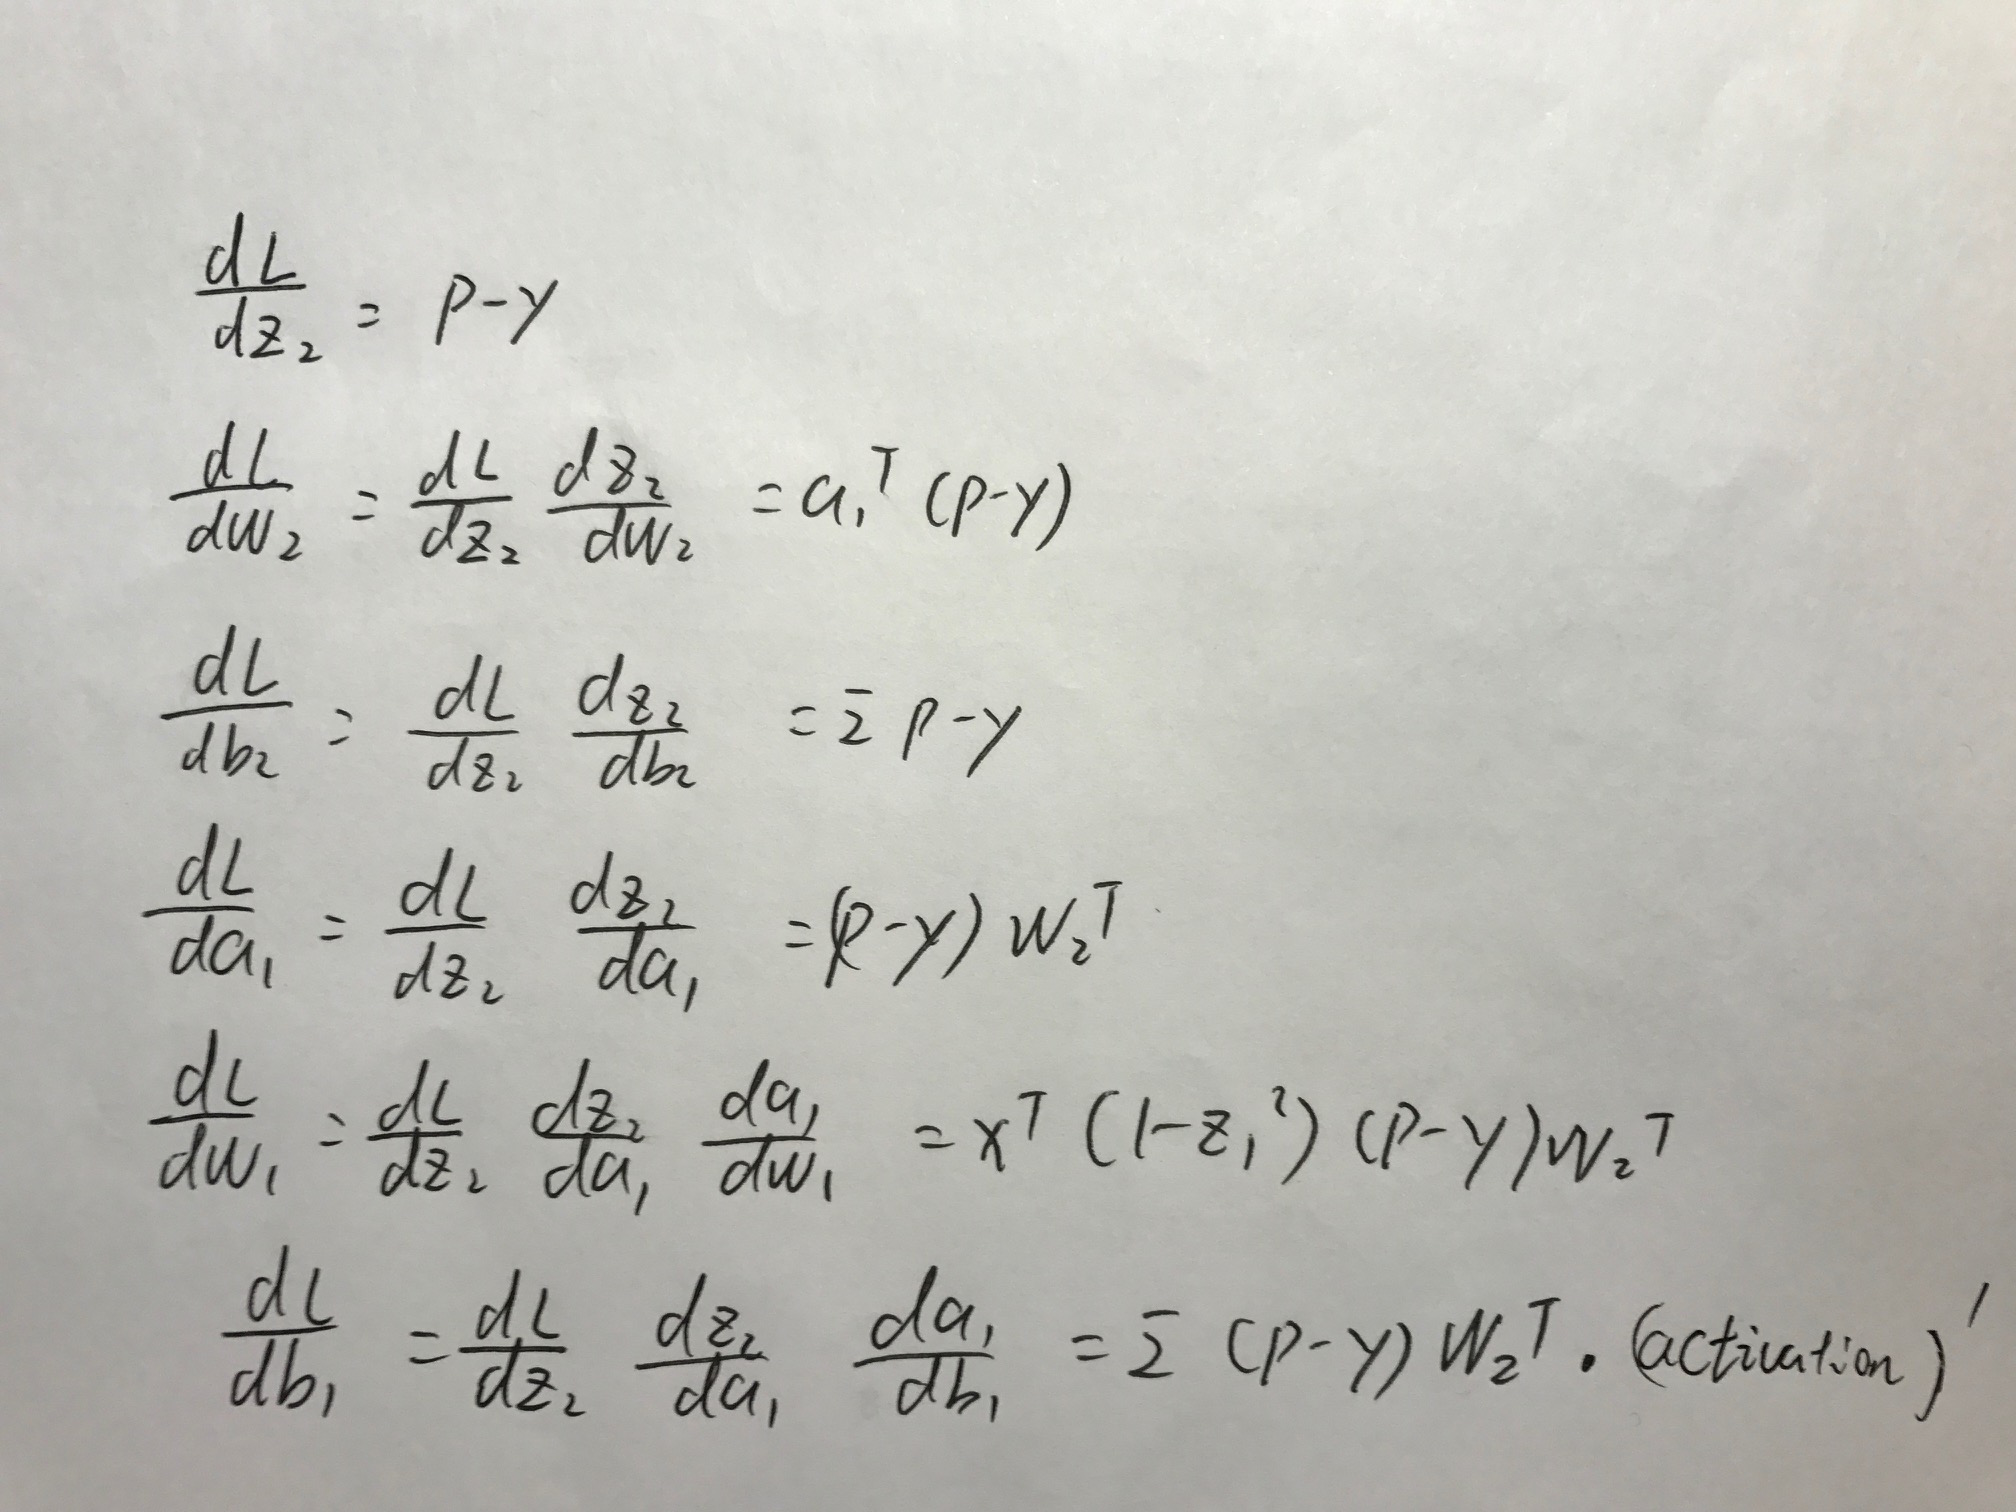 dL/dz₂ = p-y
dL/dW₂ = dL/dz₂ dz₂/dW₂ = a₁ᵀ (p-y)
dL/db₂ = dL/dz₂ dz₂/db₂ = Σ p-y
dL/da₁ = dL/dz₂ dz₂/da₁ = (p-y) W₂ᵀ
dL/dW₁ = dL/dz₂ dz₂/da₁ da₁/dW₁ = xᵀ (1-z₁²) (p-y) W₂ᵀ
dL/db₁ = dL/dz₂ dz₂/da₁ da₁/db₁ = Σ (p-y) W₂ᵀ · (activation)'